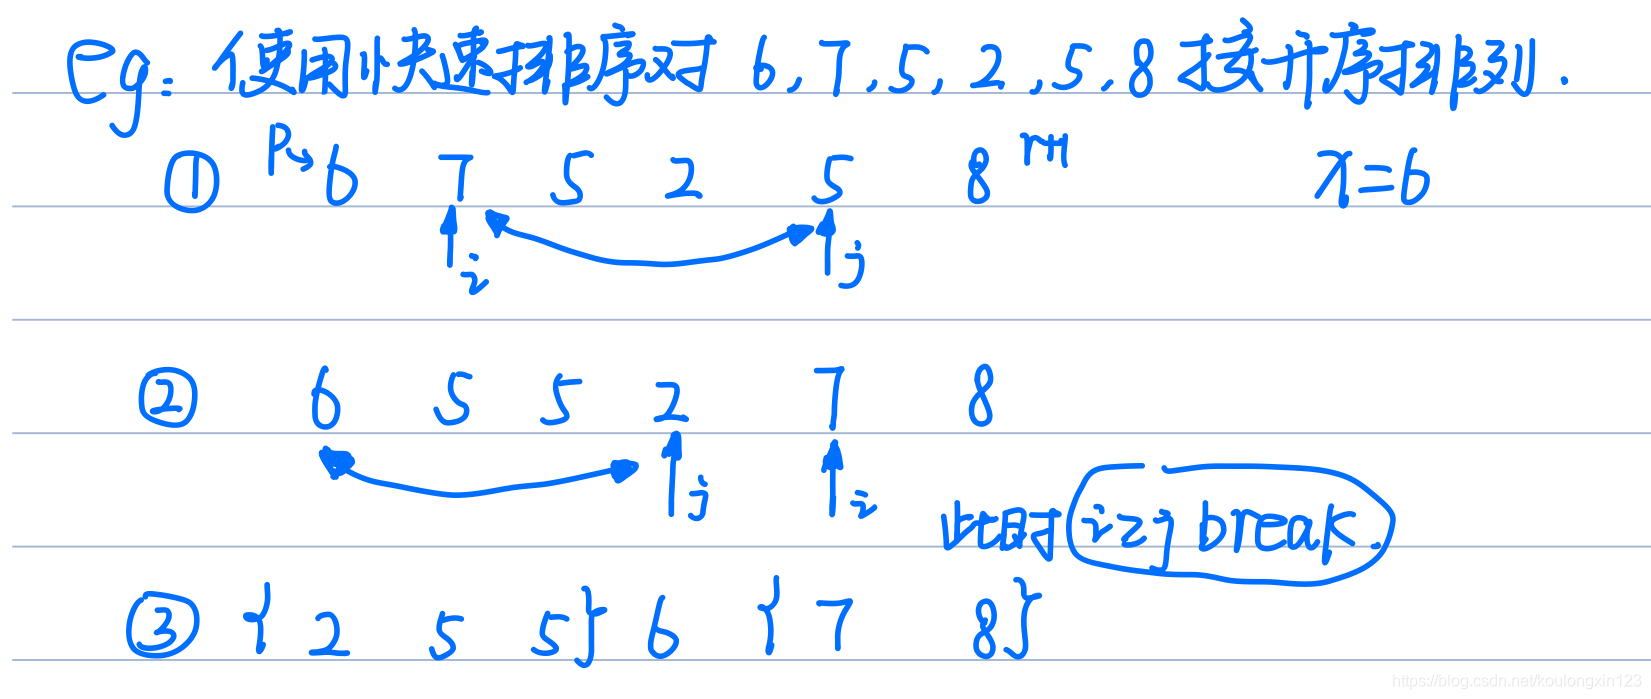 eg: 使用快速排序对 6,7,5,2,5,8 按升序排列.
① P→ 6 7 5 2 5 8 r+1 x=6
i j
② 6 5 5 2 7 8
j i
此时 i≥j break.
③ {2 5 5} 6 {7 8}
https://blog.csdn.net/koulongxin123